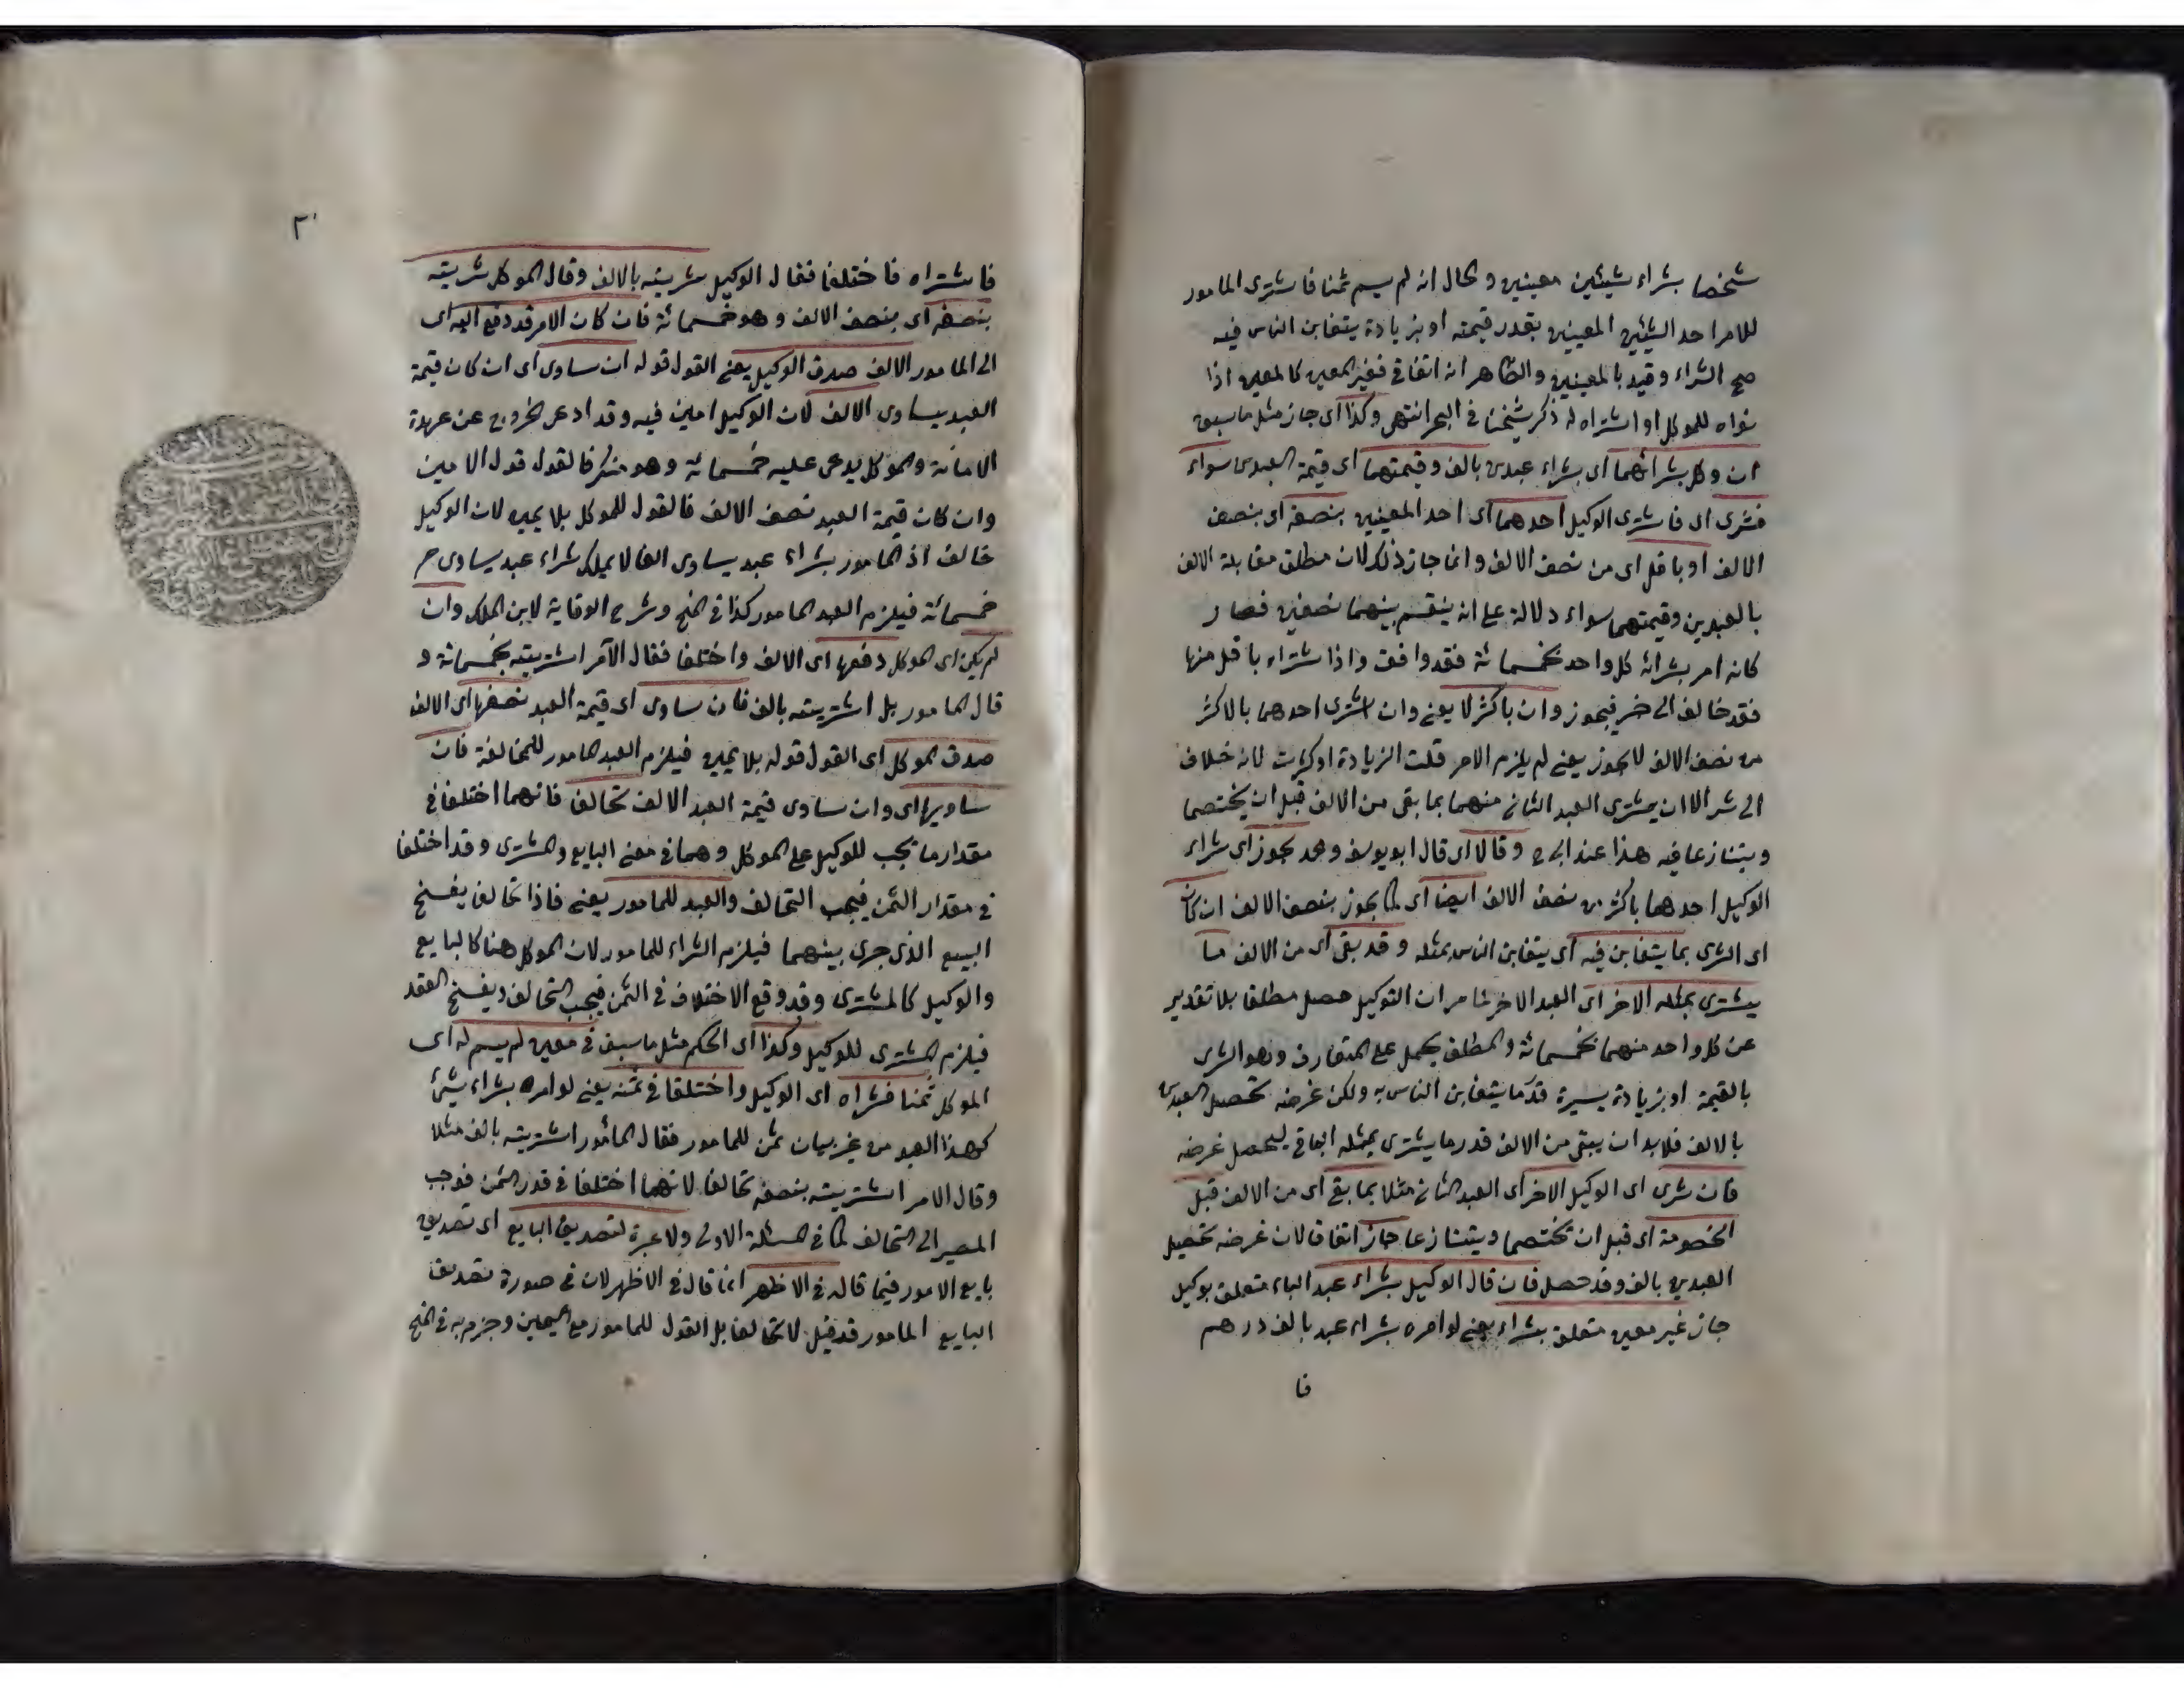 شخصا بشراء شيئين معينين والحال انه لم يسم ثمنا فاشترى المامور
للامر احد الشيئين المعينين بقدر قيمته او بزيادة يتغابن الناس فيه
صح الشراء وقيد بالمعينين والظاهر انه اتفاقي فغير المعين كالمعين اذا
نواه للموكل او اشتراه له ذكر شيخنا في البحر انتهى وكذا اى جاز مثل ما سبق
ان وكل بشرائهما اى بشراء عبدين بالف وقيمتهما اى قيمة العبدين سواء
فشرى اى فاشترى الوكيل احدهما اى احد المعينين بنصفه اى بنصف
الالف او باقل اى من نصف الالف وانما جاز ذلك لان مطلق مقابلة الالف
بالعبدين وقيمتهما سواء دلالة على انه ينقسم بينهما نصفين فصار
كانه امر بشرائه كل واحد بخمسمائة فقد وافق واذا اشتراه باقل منها
فقد خالف الى خير فيجوز وان باكثر لا يعنى وان اشترى احدهما بالاكثر
من نصف الالف لا يجوز يعنى لم يلزم الامر قلت الزيادة او كثرت لانه خلاف
الى شر الا ان يشترى العبد الثانى منهما بما بقى من الالف قبل ان يختصما
ويتنازعا فيه هذا عند ابى ح وقالا اى قال ابو يوسف ومحمد يجوز اى شراء
الوكيل احدهما باكثر من نصف الالف ايضا اى كما يجوز بنصف الالف ان كان
اى الشرى بما يتغابن فيه اى يتغابن الناس بمثله وقد بقى اى من الالف ما
يشترى بمثله الاخر اى العبد الاخر لما مر ان التوكيل حصل مطلقا بلا تقدير
عن كل واحد منهما بخمسمائة والمطلق يحمل على المتعارف وهو الشرى
بالقيمة او بزيادة يسيرة قدر ما يتغابن الناس به ولكن غرضه تحصيل العبدين
بالالف فلا بد ان يبقى من الالف قدر ما يشترى بمثله الباقى ليحصل غرضه
فان شرى اى الوكيل الاخر اى العبد الثانى مثلا بما بقى اى من الالف قبل
الخصومة اى قبل ان تختصما ويتنازعا جاز اتفاقا لان غرضه تحصيل
العبدين بالف وقد حصل فان قال الوكيل بشراء عبد الباء متعلق بوكيل
جاز غير معين متعلق بشراء يعنى لو امره بشراء عبد بالف درهم
فا
٢٠
فاشتراه فاختلفا فقال الوكيل شريته بالالف وقال الموكل شريته
بنصفه اى بنصف الالف وهو خمسمائة فان كان الامر قد دفع اليه اى
الى المامور الالف صدق الوكيل يعنى القول قوله ان ساوى اى ان كان قيمة
العبد يساوى الالف لان الوكيل امين فيه وقد ادعى الخروج عن عهدة
الامانة والموكل يدعى عليه خمسمائة وهو منكر فالقول قول الامين
وان كان قيمة العبد نصف الالف فالقول للموكل بلا يمين لان الوكيل
خالف اذ المامور بشراء عبد يساوى الفا لا يملك شراء عبد يساوى
خمسمائة فيلزم العبد المامور كذا في المنح وشرح الوقاية لابن الملك وان
لم يكن اى الموكل دفعها اى الالف واختلفا فقال الآمر اشتريته بخمسمائة و
قال المامور بل اشتريته بالف فان ساوى اى قيمة العبد نصفها اى الالف
صدق الموكل اى القول قوله بلا يمين فيلزم العبد المامور للمخالفة فان
ساويها اى وان ساوى قيمة العبد الالف تحالفا فانهما اختلفا في
مقدار ما يجب للوكيل على الموكل وهما في معنى البايع والمشترى وقد اختلفا
في مقدار الثمن فيجب التحالف والعبد للمامور يعنى فاذا تحالف يفسخ
البيع الذى جرى بينهما فيلزم الشراء للمامور لان الموكل هنا كالبايع
والوكيل كالمشترى وقد وقع الاختلاف في الثمن فيجب التحالف ويفسخ العقد
فيلزم المشترى للوكيل وكذا اى الحكم مثل ما سبق في معين لم يسم له اى
الموكل ثمنا فشراه اى الوكيل واختلفا في ثمنه يعنى لو امره بشراء شئ
كهذا العبد من غير بيان ثمن للمامور فقال المأمور اشتريته بالف مثلا
وقال الامر اشتريته بنصفه تحالفا لانهما اختلفا في قدر الثمن فوجب
المصير الى التحالف كما في المسئلة الاولى ولا عبرة لتصديق البايع اى تصديق
بايع الامور فيما قاله في الاظهر انما قال في الاظهر لان في صورة تصديق
البايع المامور قد قيل لا تحالفا بل القول للمامور مع اليمين وجزم به في المنح